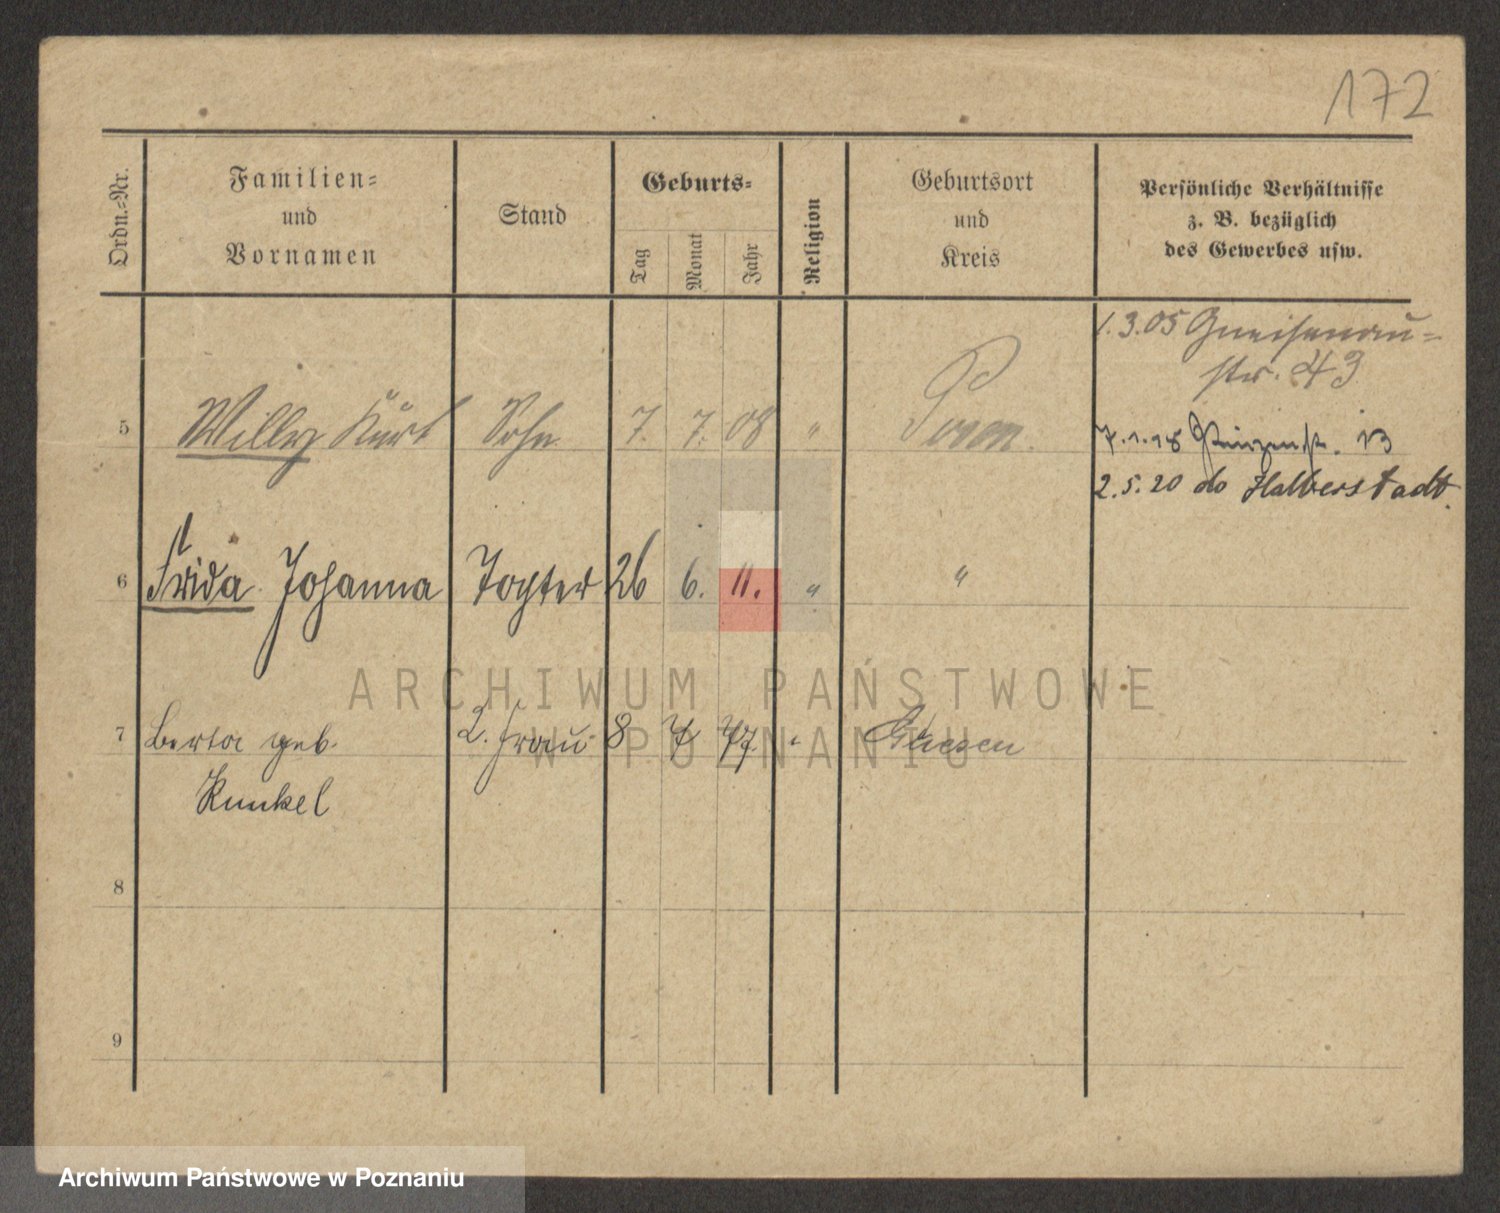 172
Ordn.-Nr.
Familien-
und
Vornamen
Stand
Geburts-
Tag
Monat
Jahr
Religion
Geburtsort
und
Kreis
Persönliche Verhältnisse
z. B. bezüglich
des Gewerbes usw.
1.3.05 Gneisenau-
str. 43
5 Willy Kurt Sohn 7. 7. 08 " Posen.
7.1.18 13
2.5.20 do Halberstadt.
6 Frida Johanna Tochter 26 6. 11. " "
7 Berta geb. 2. Frau 8 7 77 " Gnesen
Kunkel
8
9
ARCHIWUM PAŃSTWOWE
W POZNANIU
Archiwum Państwowe w Poznaniu